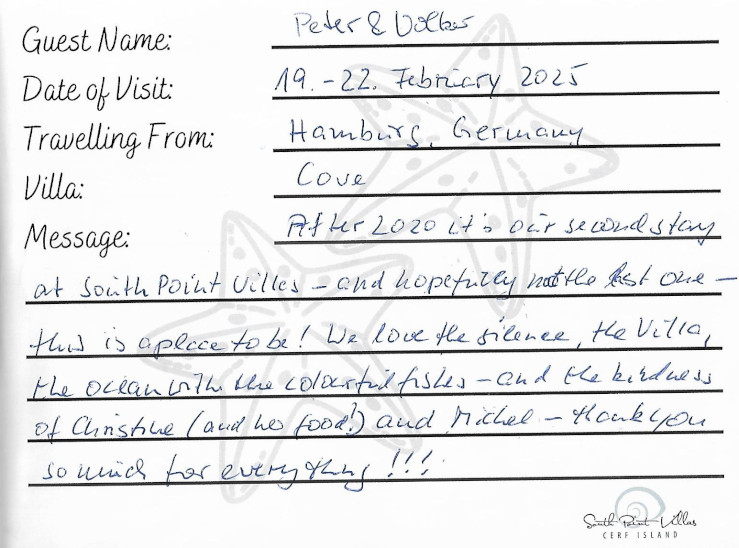 Guest Name: Peter & Volker
Date of Visit: 19. - 22. February 2025
Travelling From: Hamburg, Germany
Villa: Cove
Message: After 2020 it's our second stay
at South Point Villas - and hopefully not the last one -
this is a place to be! We love the silence, the Villa,
the ocean with the colourful fishes - and the kindness
of Christine (and her food!) and Michel - thank you
so much for everything!!!
South Point Villas
CERF ISLAND